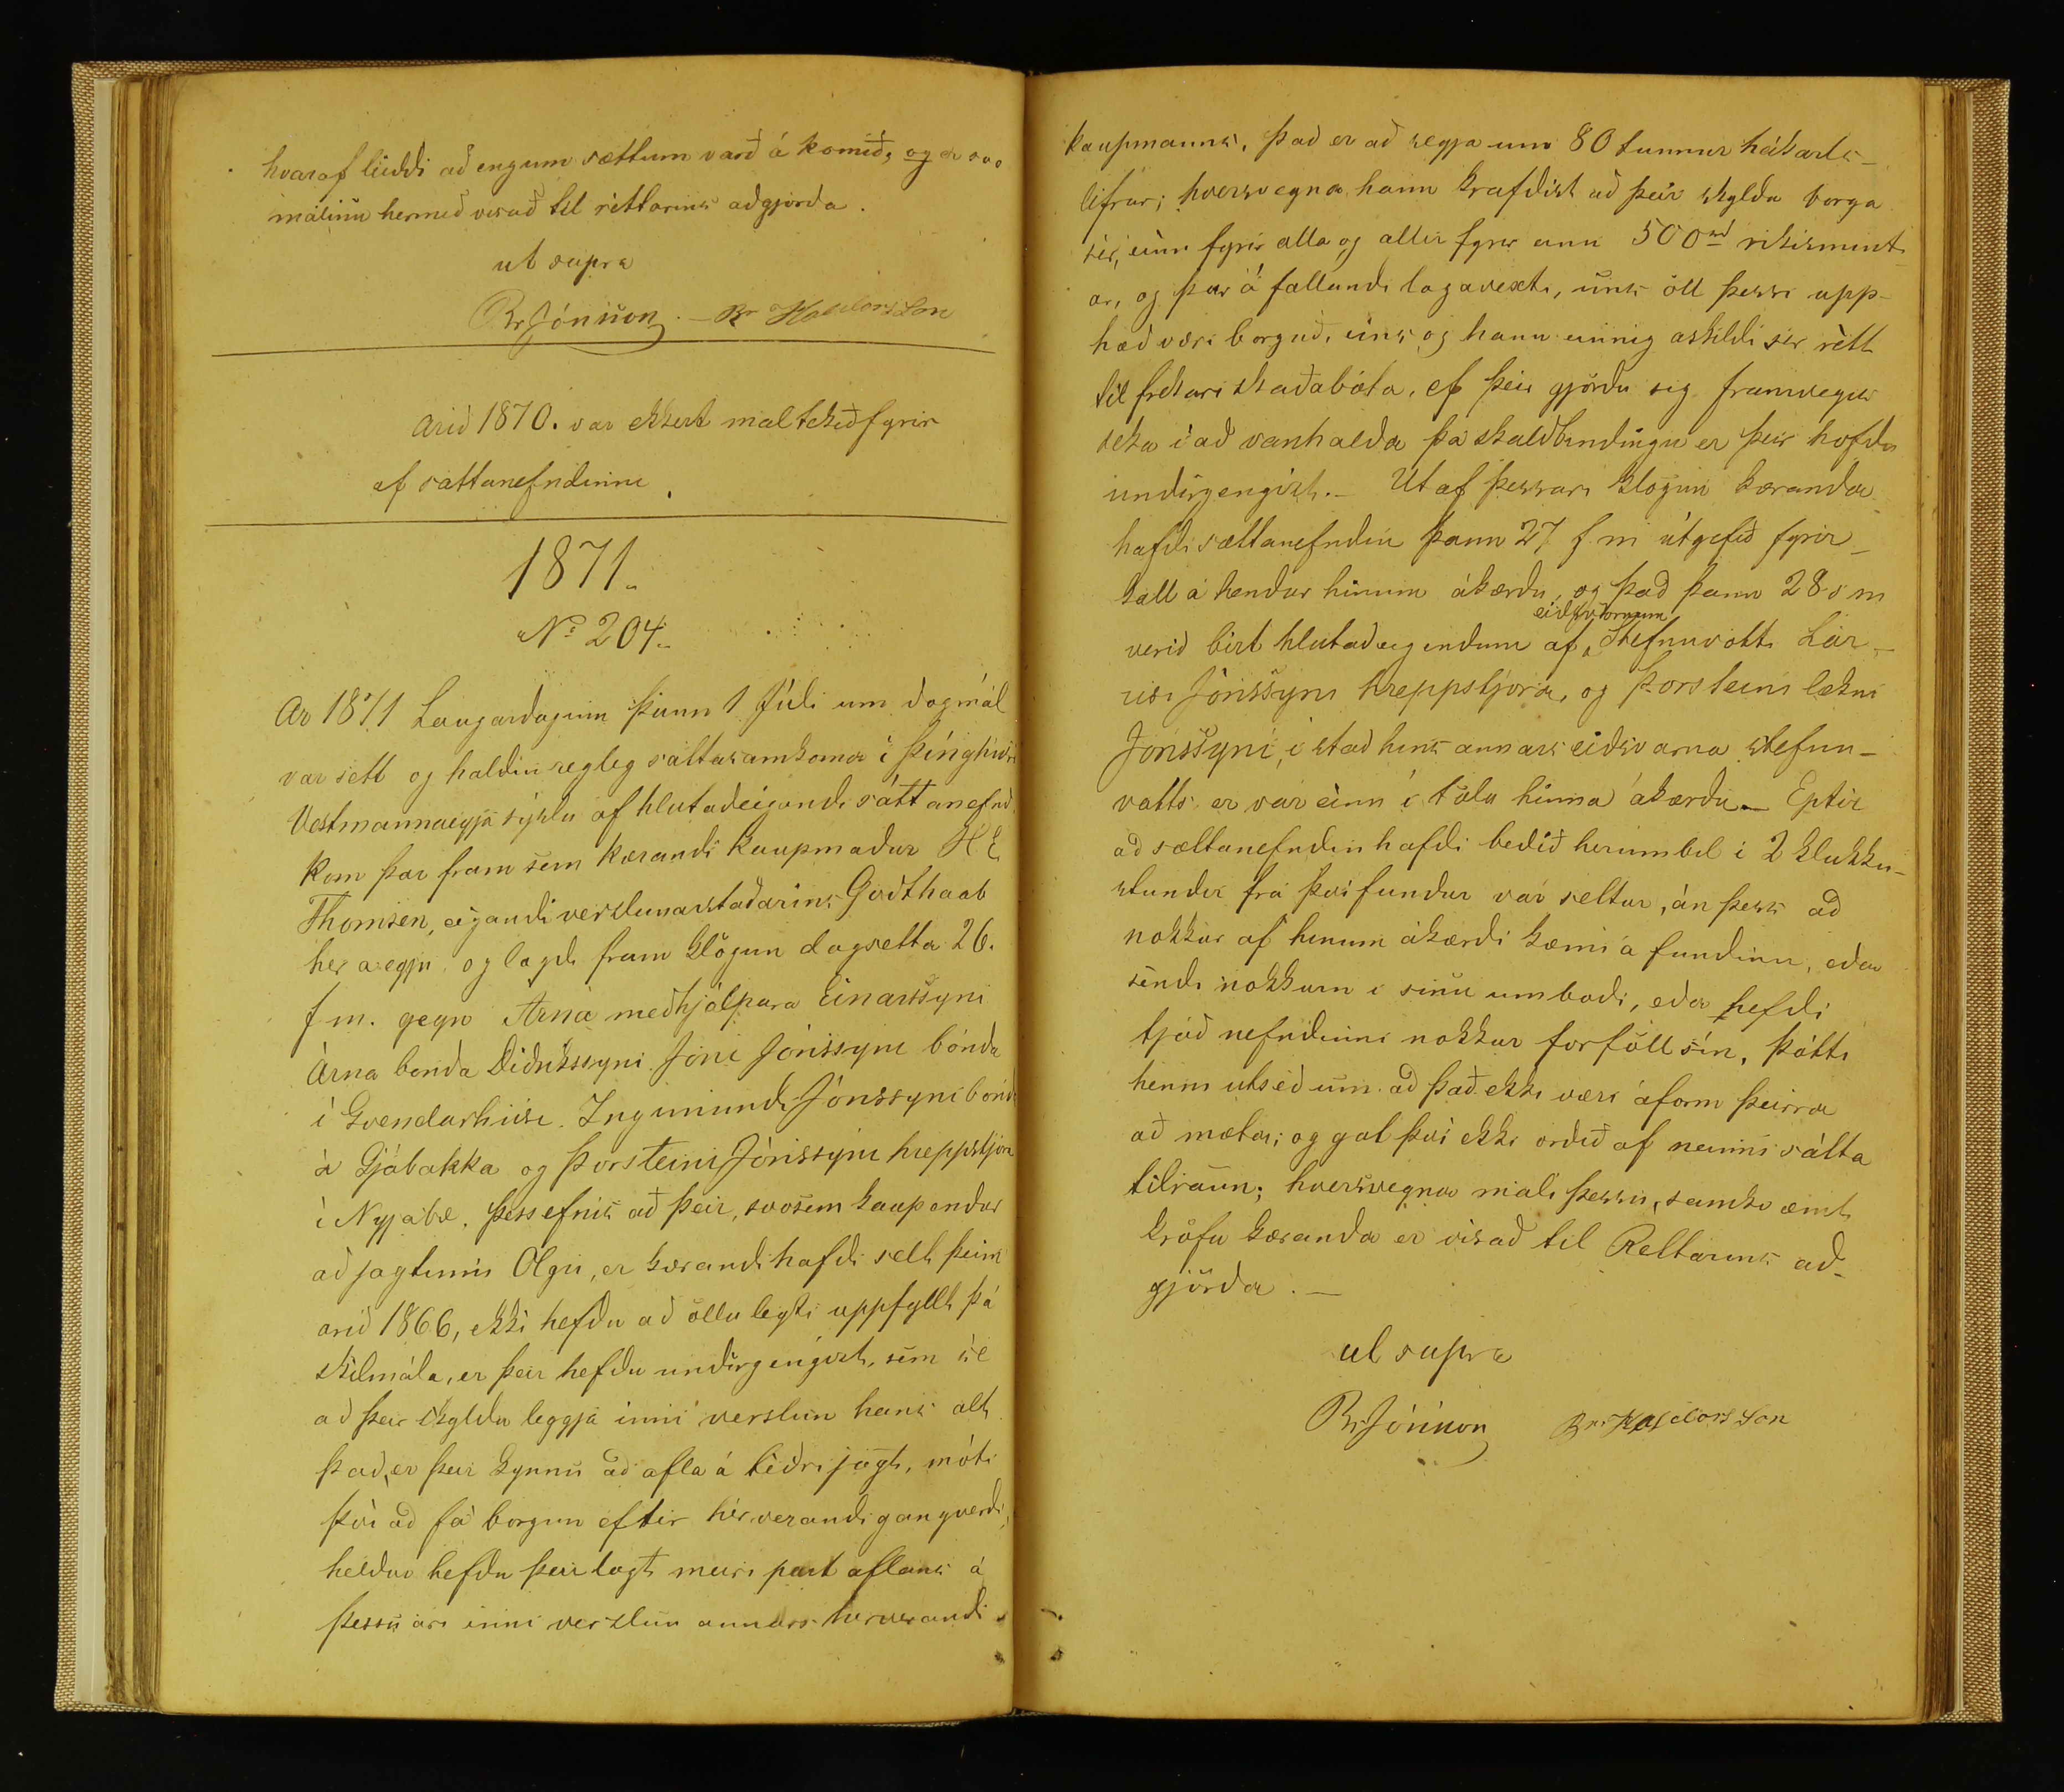 hvaraf liddi að engum sættum varð á komið, og er svo
málinu hermeð visað til réttarins aðgjörða.
ut supra
Br Jónsson. Br Halldorsson
Arið 1870. var ekkert mal tekið fyrir
af sattanefndinni.
1871.
No 204.
Ar 1871 Laugardaginn þann 1 Júli um dagmál
var sett og haldin regleg sáttasamkoma i þinghúsi
Vestmannaeyja sýslu af hlutaðeigandi sáttanefnd.
Kom þar fram sem kærandi kaupmaður H E
Thomsen, eigandi verslunarstaðarins Godthaab
her a eyju og lagði fram klögun dagsetta 26.
f m. gegn Arna meðhjálpara Einarssyni
Árna bonda Diðrikssyni Jóni Jónssyni bónda
i Gvendarhúsi. Ingimundi Jónssyni bónda
á Gjábakka og Þorsteini Jónssyni hreppstjóra
i Nyjabæ. þess efnis að þeir, svosem kaupendur
að jagtinni Olgu, er kærandi hafði selt þeim
arið 1866, ekki hefðu að öllu leyti uppfyllt þá
skilmála, er þeir hefðu undirgengist, sem sé
að þeir skyldu leggja inní verslun hans alt
það, er þeir kynnu að afla á téðri jagt, móti
því að fá borgun eftir hérverandi gangverði,
heldur hefðu þeir lagt meiri part aflans á
þessu ári inní verslun annars herverandi
kaupmanns, það er að segja um 80 tunnur hákarls-
lifrar; hversvegna hann krafðist að þeir skyldu borga
sér, einn fyrir alla og allir fyrir einn 500 rd rikismynt-
ar, og þar á fallandi lagavexti, uns öll þessi upp-
hæð væri borguð, eins og hann einnig áskildi sér rétt
til frekari skaðabóta, ef þeir gjörðu sig framvegis
seka i að vanhalda þá skuldbindingu er þeir hofdu
undirgengist.- Ut af þessari klögun kæranda
hafði sættanefndin þann 27 f. m útgefið fyrir-
kall á hendur hinum ákærðu, og það þann 28 s m
eidsvörnum
verið birt hlutaðeigendum af Stefnuvotti Lár-
usi Jónssyni hreppstjóra, og Þorsteini lækni
Jónssyni, i stað hins annars eiðsvarna stefnu-
votts er var einn í tölu hinna ákærðu.- Eptir
að sættanefndin hafdi beðið herumbil i 2 klukku-
stundir frá því fundur var settur, án þess að
nokkur af hinum ákærði kæmi á fundinn, eða
sendi nokkurn i sinu umboði, eða hefði
tjáð nefndinni nokkur forföll sín, þótti
henni utséð um að það ekki væri áform þeirra
að mæta; og gat því ekki orðið af neinni sátta
tilraun; hversvegna máli þessu, samkvæmt
kröfu kæranda er visað til Rettarins að-
gjörða.-
ut supra
Br Jónsson Br Halldorsson